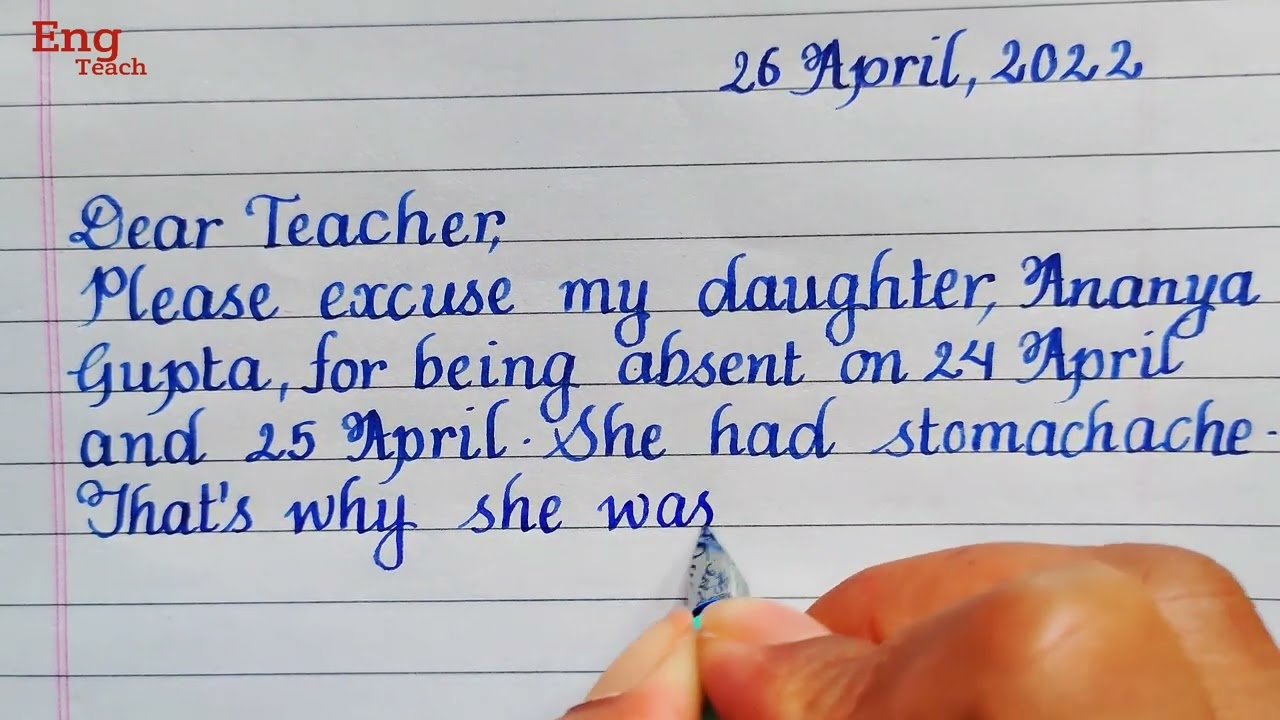 Eng
Teach
26 April, 2022
Dear Teacher,
Please excuse my daughter, Ananya
Gupta, for being absent on 24 April
and 25 April. She had stomachache.
That's why she was